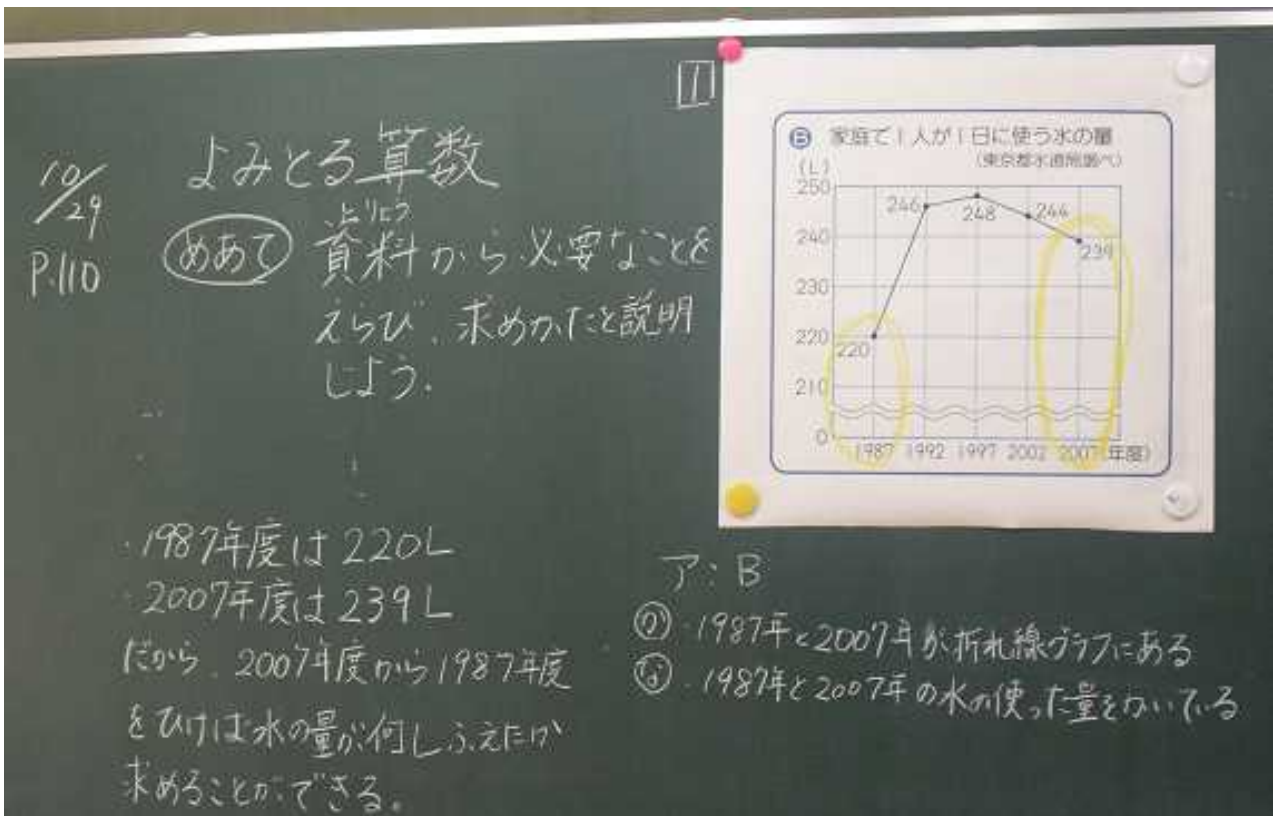 10/29
P.110
よみとる算数
めあて
しりょう
資料から必要なことを
えらび、求めかたを説明
しよう.
1
B 家庭で1人が1日に使う水の量
(東京都水道局調べ)
(L)
250
240
230
220
210
0
220
246
248
244
239
1987 1992 1997 2002 2007(年度)
・1987年度は220L
・2007年度は239L
だから、2007年度から1987年度
をひけば水の量が何Lふえたか
求めることができる。
ア:B
か ・1987年と2007年が折れ線グラフにある
な ・1987年と2007年の水の使った量をかいている